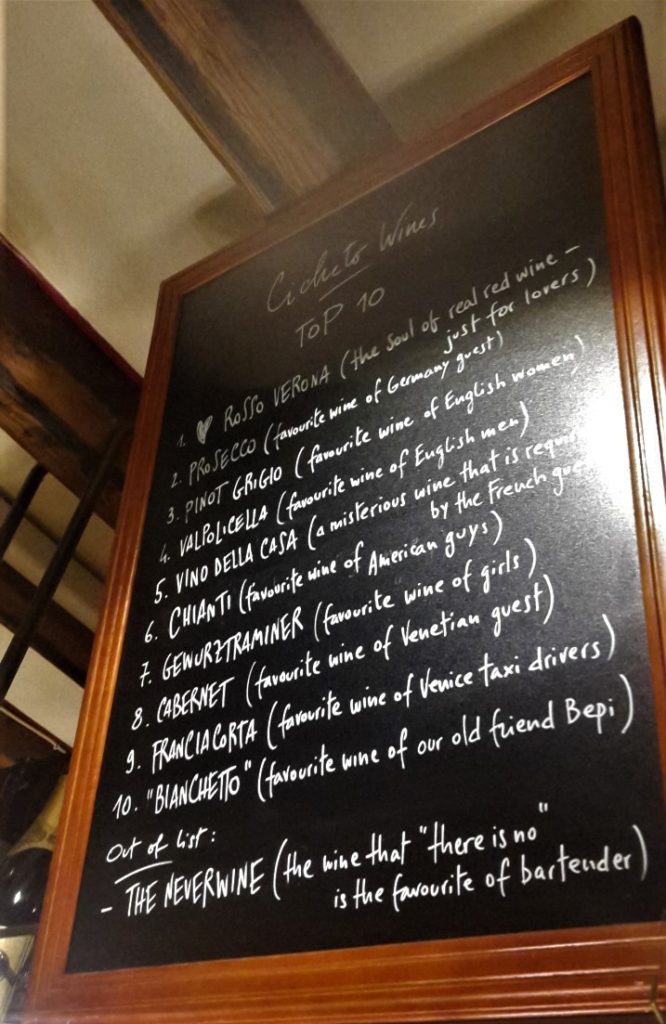 Cicheto Wines
TOP 10
1. ♥ ROSSO VERONA (the soul of real red wine -
just for lovers)
2. PROSECCO (favourite wine of Germany guest)
3. PINOT GRIGIO (favourite wine of English women)
4. VALPOLICELLA (favourite wine of English men)
5. VINO DELLA CASA (a misterious wine that is
by the French
6. CHIANTI (favourite wine of American guys)
7. GEWURZTRAMINER (favourite wine of girls)
8. CABERNET (favourite wine of Venetian guest)
9. FRANCIACORTA (favourite wine of Venice taxi drivers)
10. "BIANCHETTO" (favourite wine of our old friend Bepi)
Out of list:
- THE NEVERWINE (the wine that "there is no"
is the favourite of bartender)